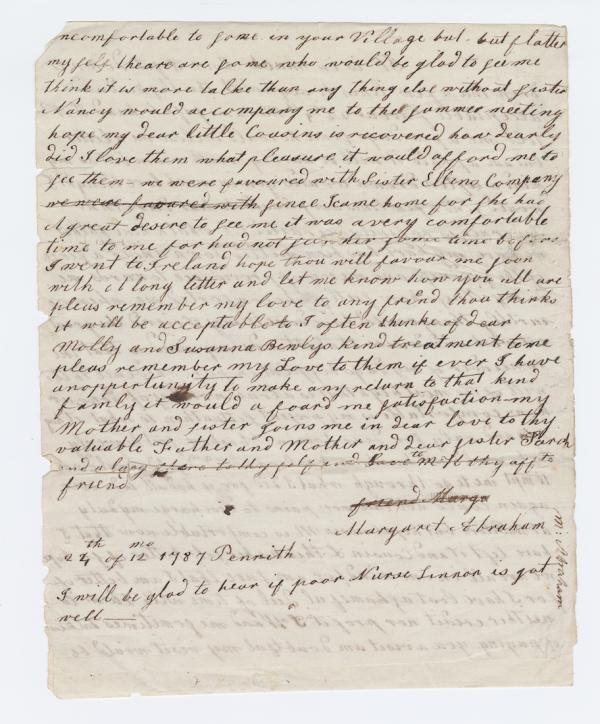 ncomfortable to some in your Village but - but flatter
my self theare are some who would be glad to see me
think it is more talke than any thing else without sister
Nancy would accompany me to the summer meeting
hope my dear little Cousins is recovered how dearly
did I love them what pleasure it would afford me to
see them - we were favoured with Sister Ellens Company
we were favoured with since I came home for she had
A great desire to see me it was a very comfortable
time to me for had not seen her some time before
I went to Ireland hope thou will favour me soon
with A long letter and let me know how you all are
pleas remember my love to any friend thou thinks
it will be acceptable to I often thinke of dear
Molly and Susanna Bewlys kind treatment to me
pleas remember my Love to them if ever I have
an opportunity to make any return to that kind
family it would a foard me satisfaction - my
Mother and sister joins me in dear love to thy
valuable Father and Mother and dear sister Sarah
and a large share to thy self and thy aff
friend
friend Marga
Margaret Abraham
24th of 12 mo 1787 Penrith
I will be glad to hear if poor Nurse Linnor is got
well
M: Abraham